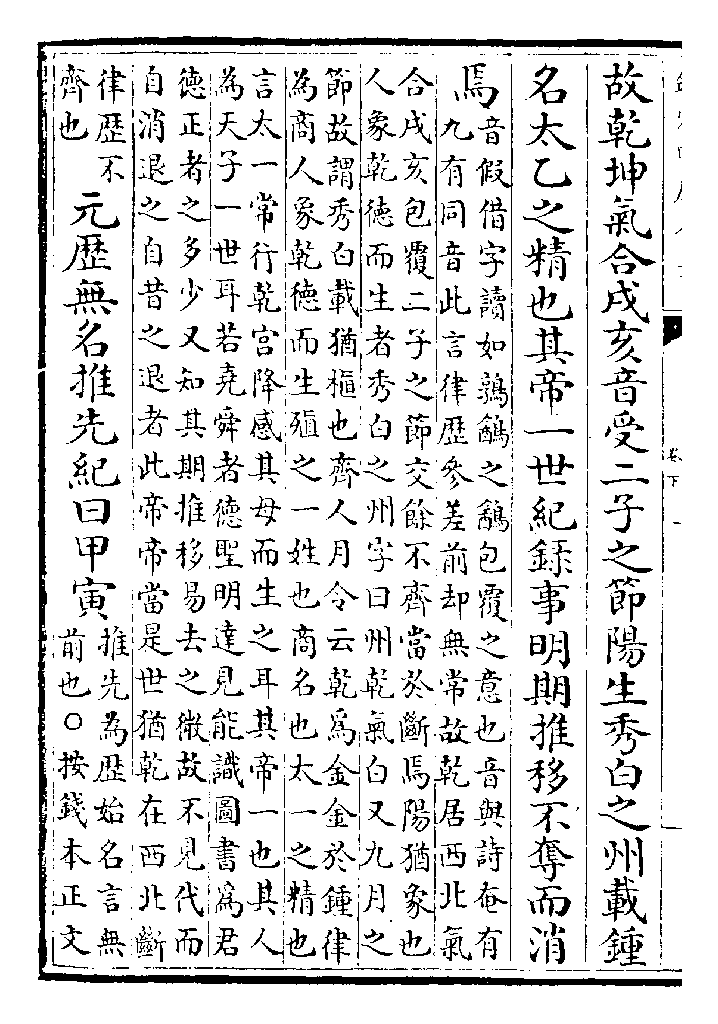 卷下
一
故乾坤氣合戌亥音受二子之節陽生秀白之州載鍾
名太乙之精也其帝一世紀錄事明期推移不奪而消
焉
音假借字讀如鶉䳺之䳺包覆之意也音與詩奄有
九有同音此言律歷參差前却無常故乾居西北氣
合戌亥包覆二子之節交餘不齊當於斷焉陽猶象也
人象乾德而生者秀白之州字曰州乾氣白又九月之
節故謂秀白載猶樞也齊人月令云乾爲金金於鍾律
為商人象乾德而生殖之一姓也商名也太一之精也
言太一常行乾宮降感其母而生之耳其帝一也其人
為天子一世耳若堯舜者德聖明達見能識圖書爲君
德正者之多少又知其期推移易去之微故不見代而
自消退之自昔之退者此帝帝當是世猶乾在西北斷
律歷不
齊也
元歷無名推先紀曰甲寅
推先為歷始名言無
前也○按錢本正文